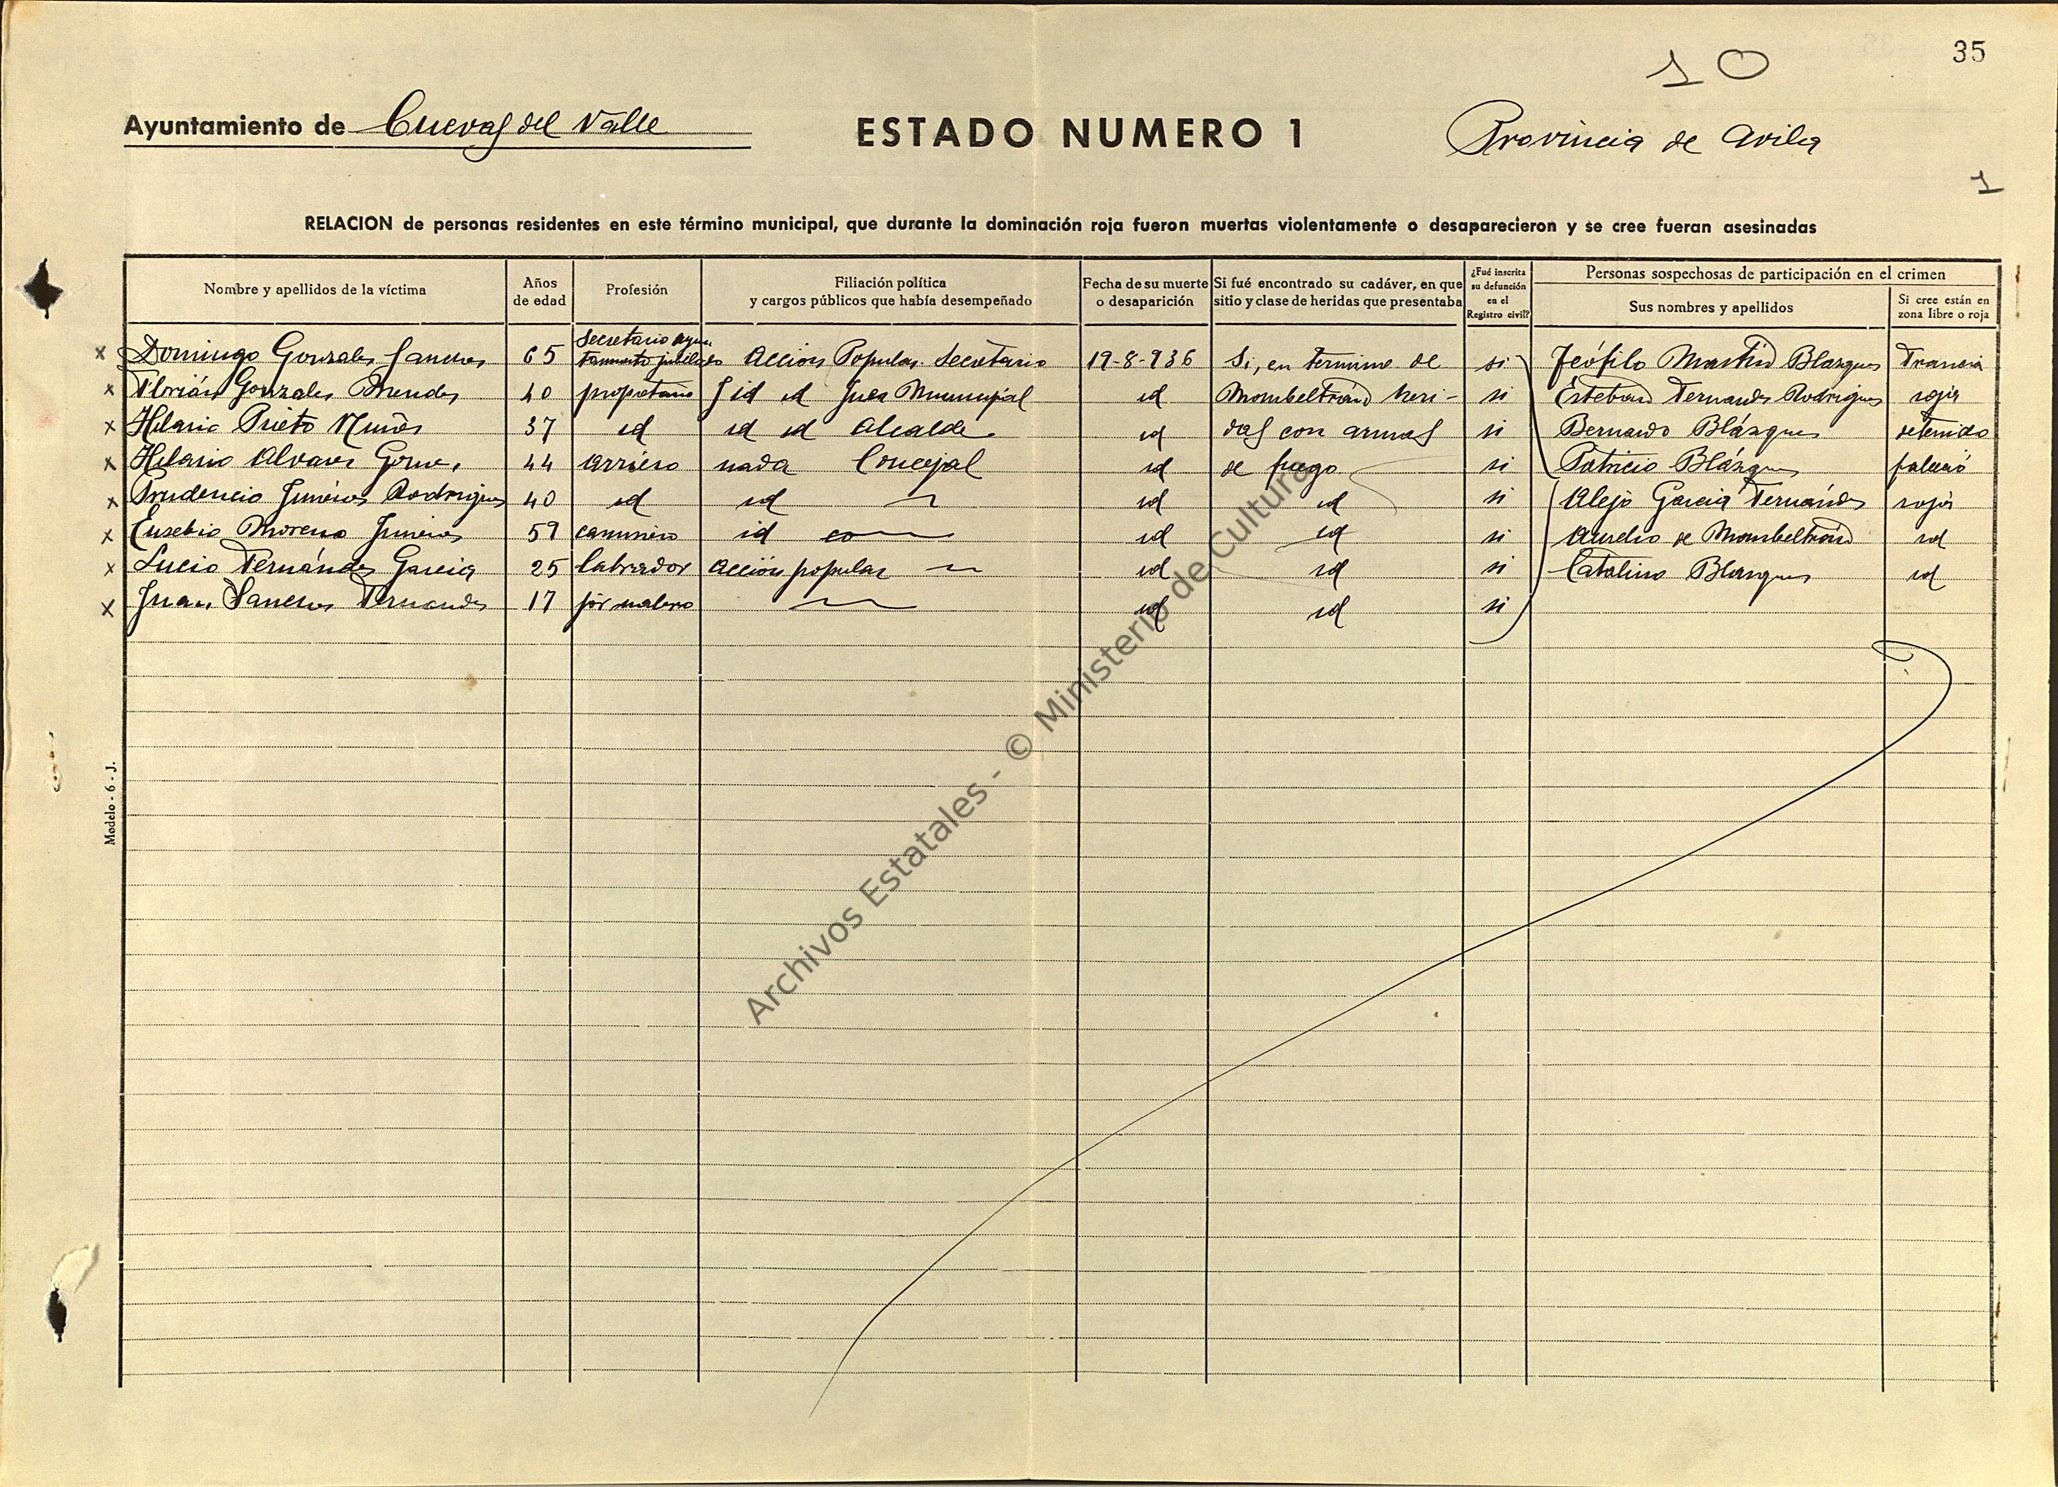 35
10
Ayuntamiento de Cuevas del Valle
ESTADO NUMERO 1
Provincia de Avila
1
RELACION de personas residentes en este término municipal, que durante la dominación roja fueron muertas violentamente o desaparecieron y se cree fueran asesinadas
Nombre y apellidos de la víctima
Años de edad
Profesión
Filiación política y cargos públicos que había desempeñado
Fecha de su muerte o desaparición
Si fué encontrado su cadáver, en que sitio y clase de heridas que presentaba
¿Fué inscrita su defunción en el Registro civil?
Personas sospechosas de participación en el crimen
Sus nombres y apellidos
Si cree están en zona libre o roja
x Domingo Gonzales Sanches 65 Secretario Ayuntamiento jubilado Acción Popular Secretario 19-8-936 Si, en termino de si Teófilo Martin Blazques Francia
x Florián Gonzales Mendes 40 propietario id id Juez Municipal id Mombeltrán heri- si Esteban Fernandes Rodrigues roja
x Hilario Prieto 37 id id id Alcalde id das con armas si Bernardo Blázques detenido
x Hilario Alvares 44 arriero nada Concejal id de fuego si Patricio Blázques falleció
x Prudencio Jiménes Rodrigues 40 id id id id si Alejo Garcia Fernándes roja
x Eusebio Moreno Jimenes 59 caminero id id id si Aurelio de Mombeltrán id
x Lucio Fernandes Garcia 25 labrador Acción popular id id si Catalino Blazques id
x Juan Sanches Fernandes 17 jornalero id id si
Modelo - 6 - J.
Archivos Estatales - © Ministerio de Cultura